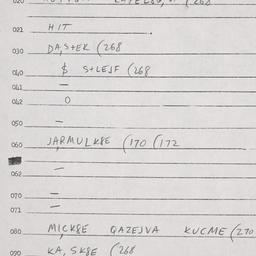 020
021 HIT
030 DA,STEK (268
040 $ S+LEJF (268
041 —
042 O
050 —
060 JARMULKSE (170 (172
062 —
070 —
071 —
080 MICKSE QAZEJVA KUCME (270
090 KA,SKSE (268